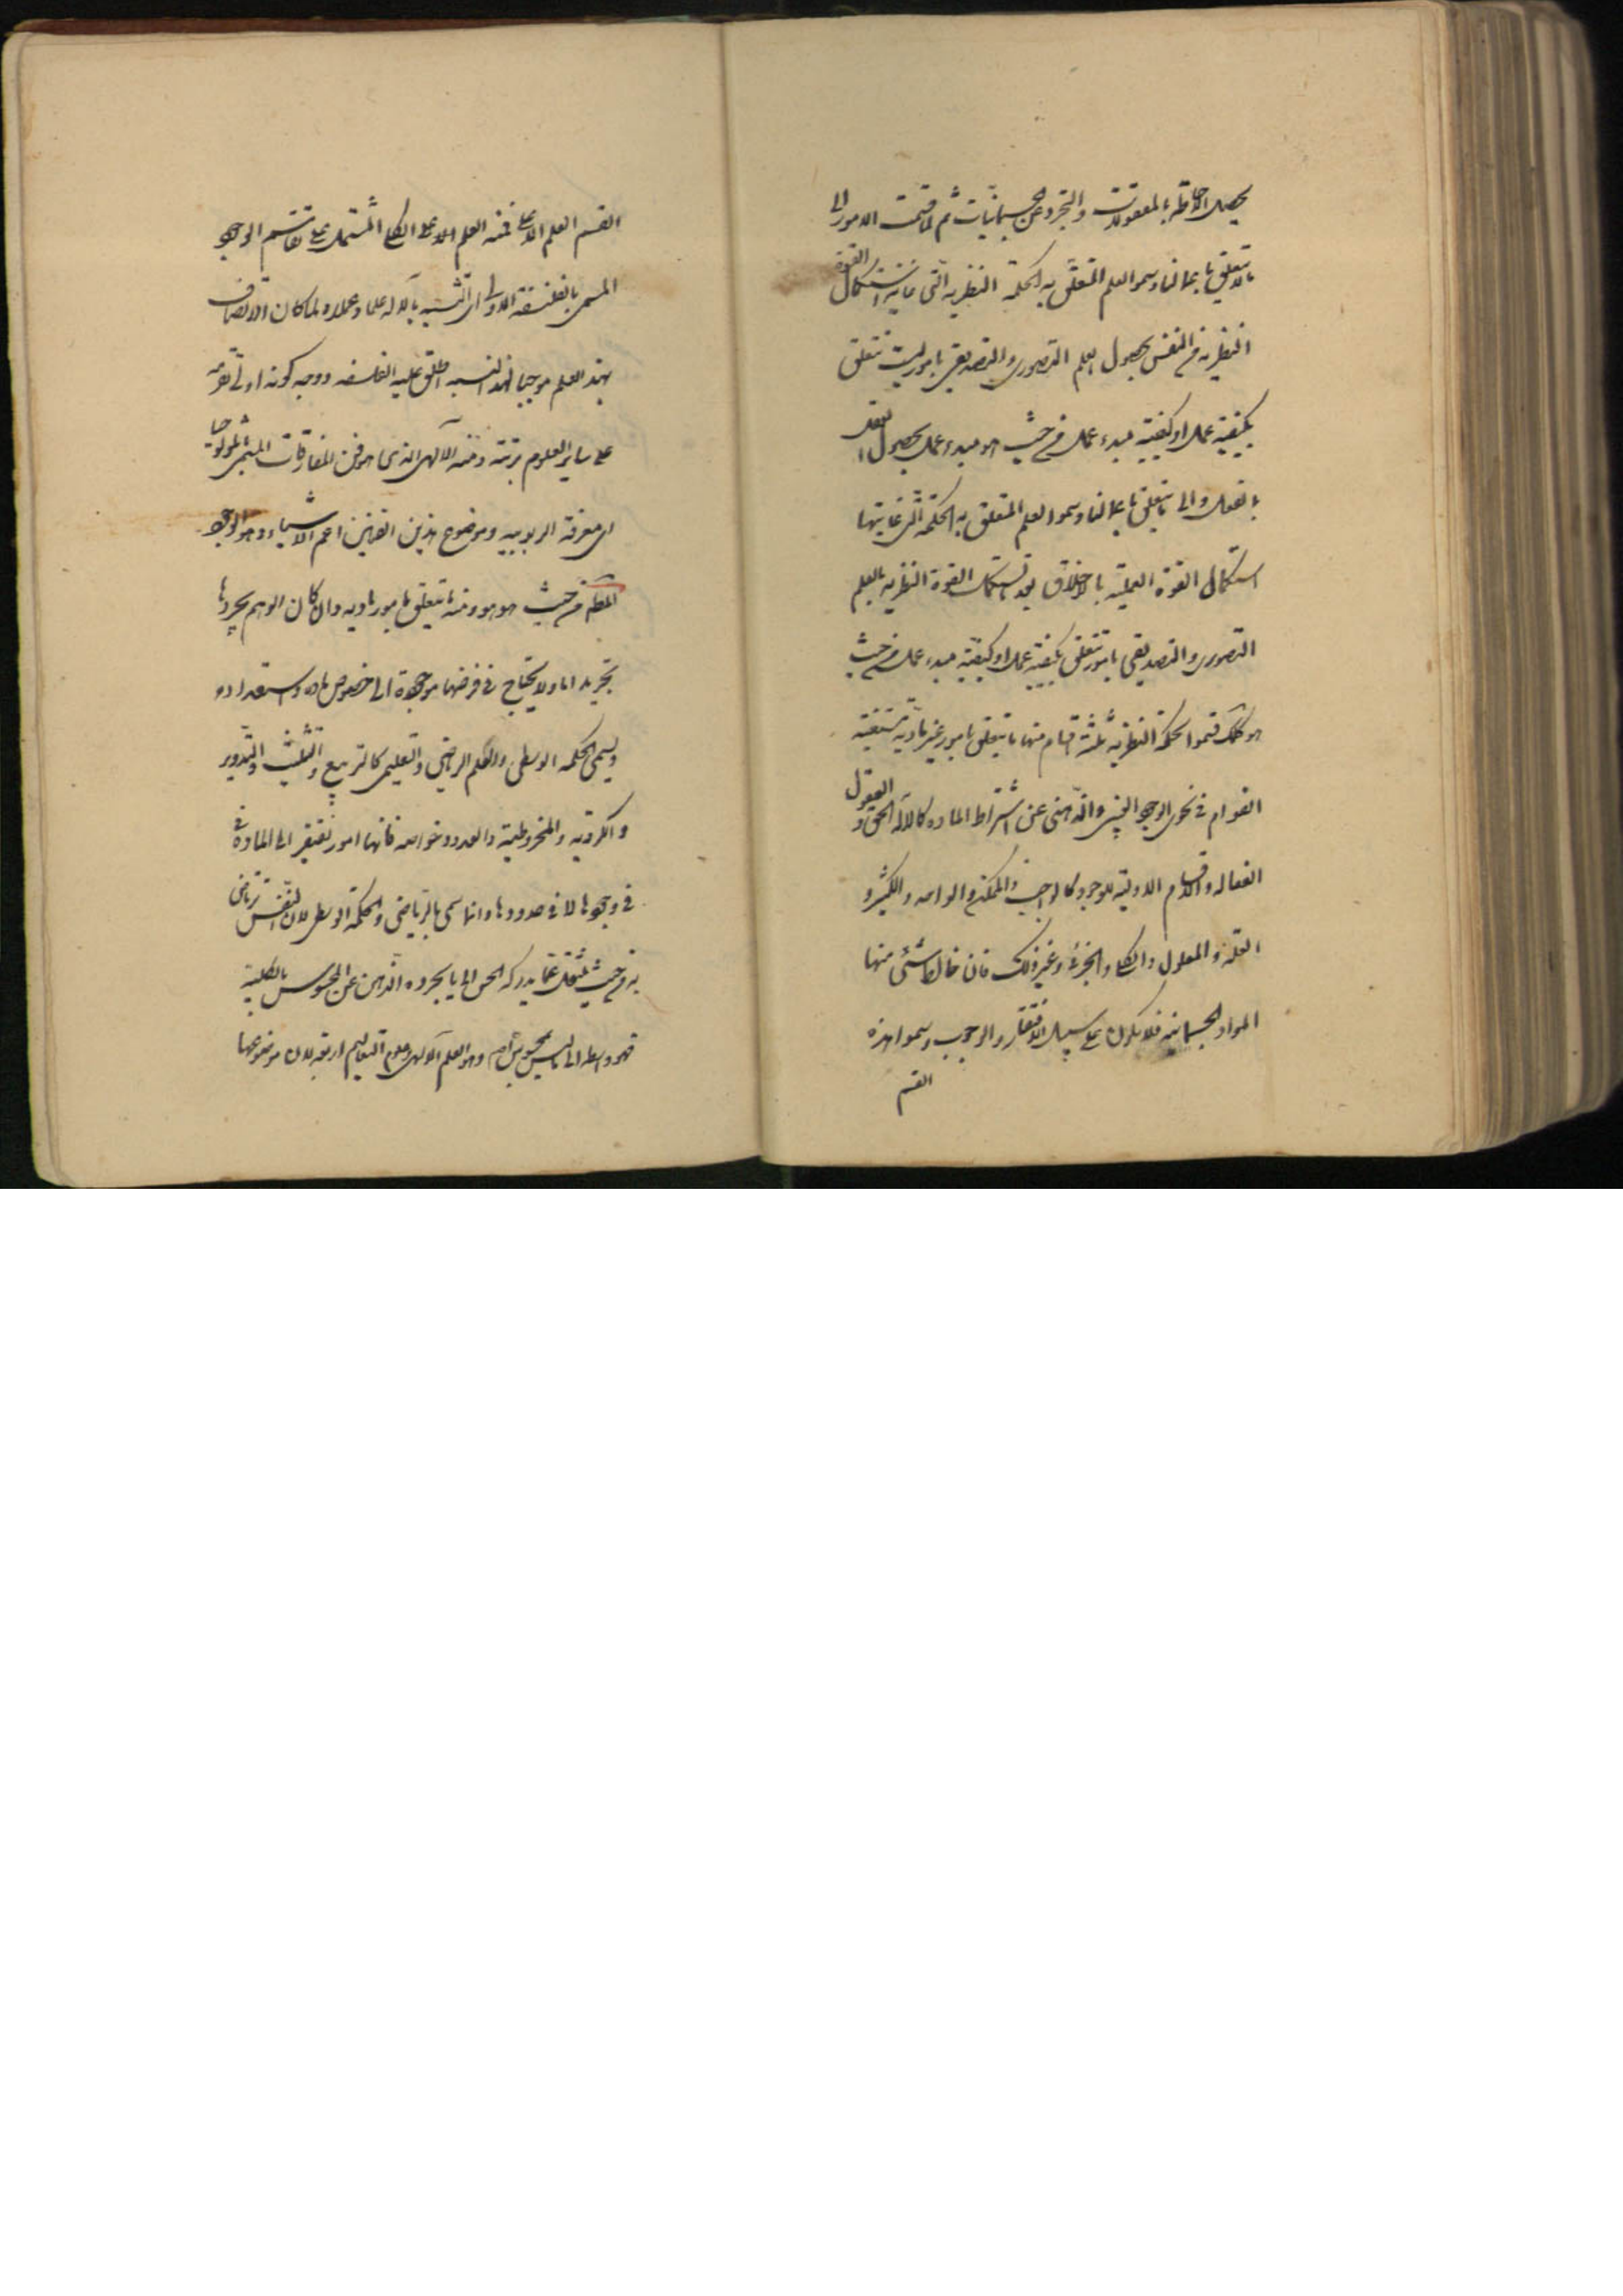 يحصل الاحاطة بالمعقولات والتجرد عن الجسمانيات ثم لما قسمت الامور الى
ما لا يتعلق باعمالنا وسموا العلم المتعلق به الحكمة النظرية التى غايته استكمال القوة
النظرية من النفس بحصول العلم التصورى والتصديقى بامور ليست تتعلق
بكيفية عمل او كيفية مبدء عمل من حيث هو مبدء عمل بحصول العقل
بالفعل والى ما يتعلق باعمالنا وسموا العلم المتعلق به الحكمة التى غايتها
استكمال القوة العملية بالاخلاق بعد استكمال القوة النظرية بالعلم
التصورى والتصديقى بامور تتعلق بكيفية عمل او كيفية مبدء عمل من حيث
هو كذلك قسموا الحكمة النظرية ثلثة اقسام منها ما يتعلق بامور غير مادية مستغنية
القوام فى نحوى الوجود العينى والذهنى عن اشتراط المادة كالاله الحق والعقول
الفعاله والاقسام الاولية للوجود كالواجب والممكن والواحد والكثير و
العلة والمعلول والكلى والجزئى وغير ذلك فان خالط شئ منها
المواد الجسمانية فلا يكون على سبيل الافتقار والوجوب وسموا هذه
القسم
القسم العلم الاعلى فمنه العلم الاعلى الكلى المشتمل على تقاسيم الوجود
المسمى بالفلسفة الاولى اى التشبه بالاله علما وعملا ولما كان الاتصاف
بهذا العلم موجبا لهذا التشبه اطلق عليه الفلسفه ووجه كونه اولى تقدمه
على ساير العلوم مرتبة ومنه الالهى الذى هو فن المفارقات المسمى باثولوجيا
اى معرفة الربوبيه وموضوع هذين الفنين اعم الاشياء وهو الوجود
المطلق من حيث هو هو ومنه ما يتعلق بامور ماديه وان كان الوهم يجردها
تجريدا ما ولا يحتاج فى فرضها موجودة الى خصوص ماده واستعداد
ويسمى الحكمه الوسطى والعلم الرياضى والتعليمى كالتربيع والتثليث والتدوير
والكروية والمخروطية والعدد وخواصه فانها امور تفتقر الى المادة
فى وجودها لا فى حدودها وانما سمى بالرياضى والحكمة الوسطى لان النفس ترتاض
به من حيث ينتقل عما يدركه الحس الى ما يجرده الذهن عن المحسوس بالكلية
فهو واسطه الى ما ليس بمحسوس اصلا وهو العلم الالهى وعلوم التعاليم اربعة لان موضوعها